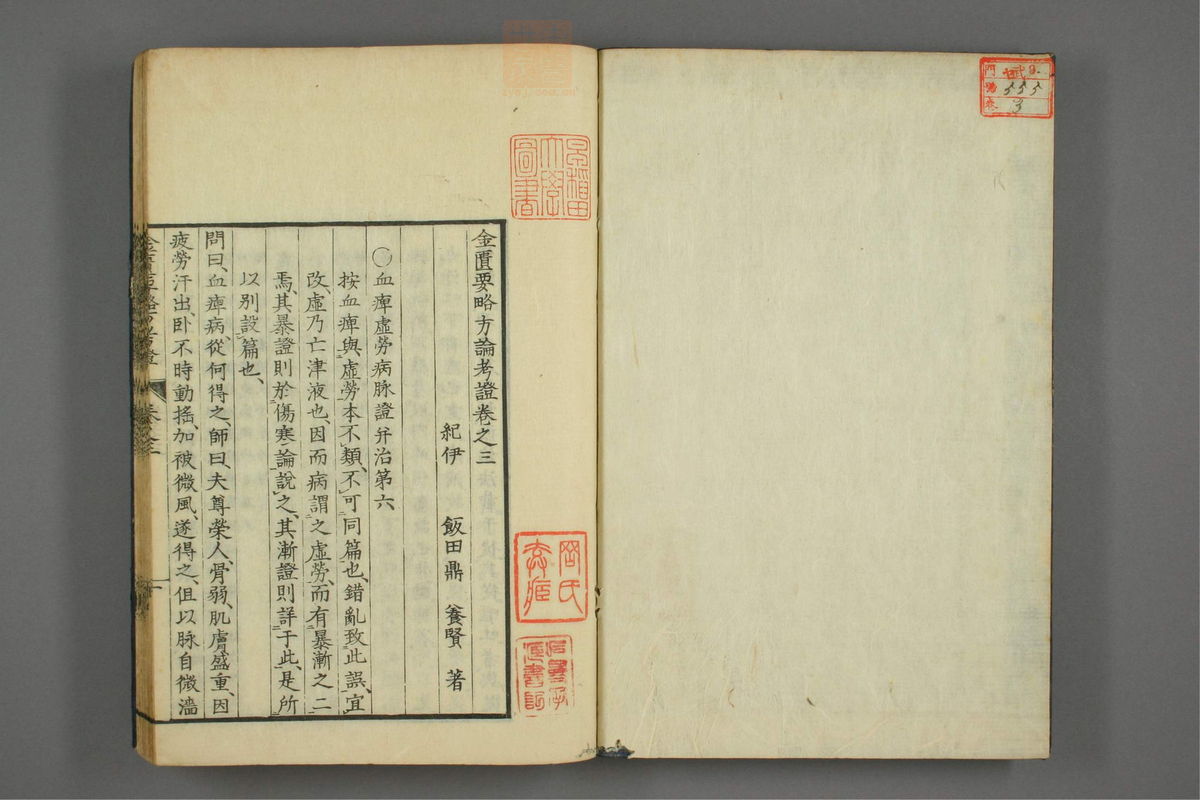 門 武9
號 555
卷 3
早稲田
大學
圖書
金匱要略方論考證卷之三
紀伊 飯田鼎 養賢 著
〇血痺虛勞病脉證并治第六
按血痺與虛勞本不類、不可同篇也、錯亂致此誤、宜
改、虛乃亡津液也、因而病謂之虛勞、而有暴漸之二
焉、其暴證則於傷寒論說之、其漸證則詳于此、是所
以別設篇也、
問曰、血痺病、從何得之、師曰、夫尊榮人、骨弱、肌膚盛重、因
疲勞汗出、卧不時動搖、加被微風、遂得之、但以脉自微濇